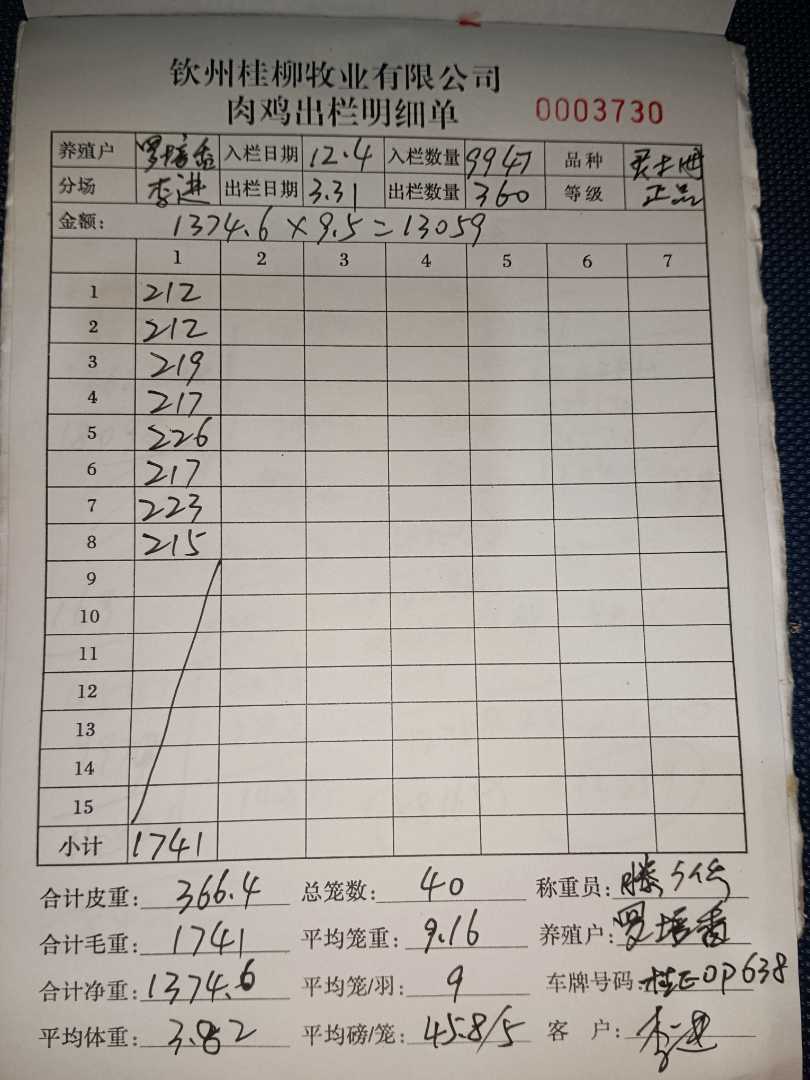 钦州桂柳牧业有限公司
肉鸡出栏明细单 0003730
养殖户 罗培香 入栏日期 12.4 入栏数量 9947 品种
分场 李进 出栏日期 3.31 出栏数量 360 等级 正品
金额: 1374.6×9.5=13059
1 2 3 4 5 6 7
1 212
2 212
3 219
4 217
5 226
6 217
7 223
8 215
9
10
11
12
13
14
15
小计 1741
合计皮重: 366.4 总笼数: 40 称重员:
合计毛重: 1741 平均笼重: 9.16 养殖户: 罗培香
合计净重: 1374.6 平均笼/羽: 9 车牌号码: 桂E0P638
平均体重: 3.82 平均磅/笼: 45.8/5 客 户: 李进